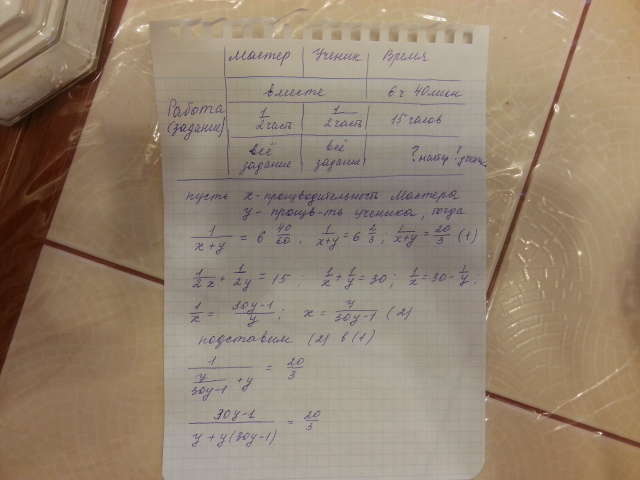 Мастер Ученик Время
вместе 6 ч 40 мин
Работа (задание) 1/2 част 1/2 част 15 часов
всё задание всё задание ? мастер ? ученик
пусть x - производительность Мастера
y - произв-ть ученика, тогда
1/(x+y) = 6 40/60, 1/(x+y) = 6 2/3, 1/(x+y) = 20/3 (1)
1/2x + 1/2y = 15. 1/x + 1/y = 30; 1/x = 30 - 1/y;
1/x = (30y-1)/y; x = y/(30y-1) (2)
подставим (2) в (1)
1/(y/(30y-1) + y) = 20/3
(30y-1)/(y+y(30y-1)) = 20/3